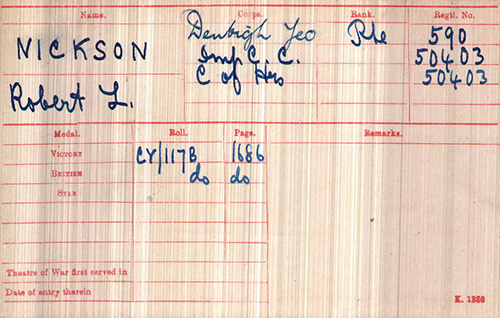 Name. Corps. Rank. Regtl. No.
NICKSON Denbigh Yeo Pte 590
Imp C. C. 50403
Robert L. C of Hrs 50403
Medal. Roll. Page. Remarks.
VICTORY CY/117B 1686
BRITISH do do
STAR
Theatre of War first served in
Date of entry therein
K. 1380